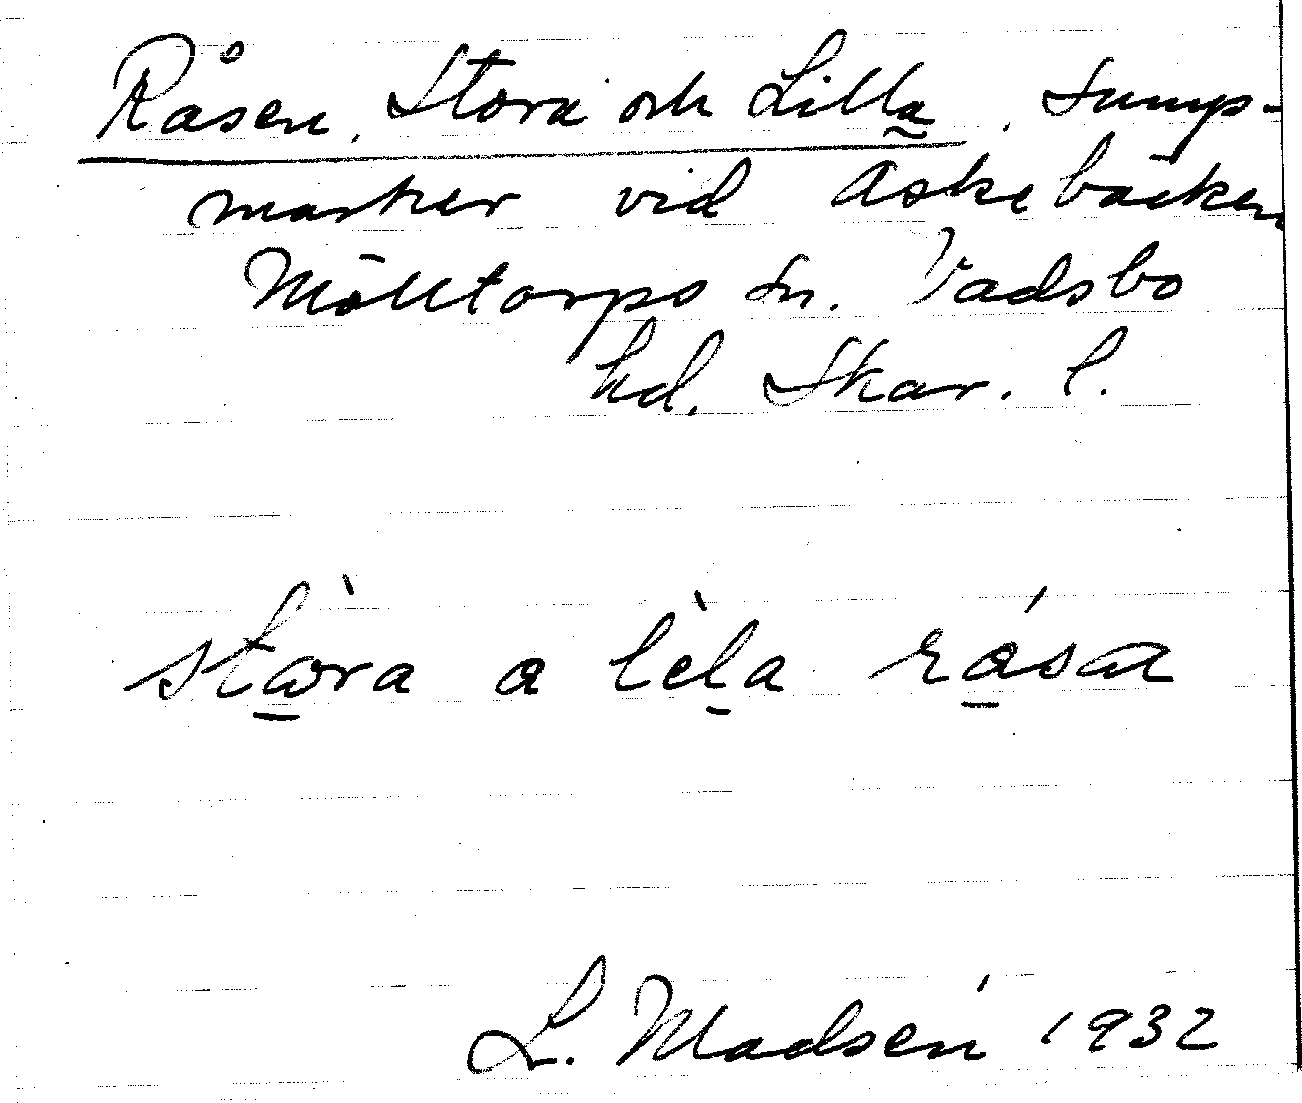 Råsen, Stora och Lilla. Sump-
marker vid Äskebäcken
Mölltorps sn. Vadsbo
hd. Skar. l.
stɷ̀ra a lèla rása
L. Madsén 1932